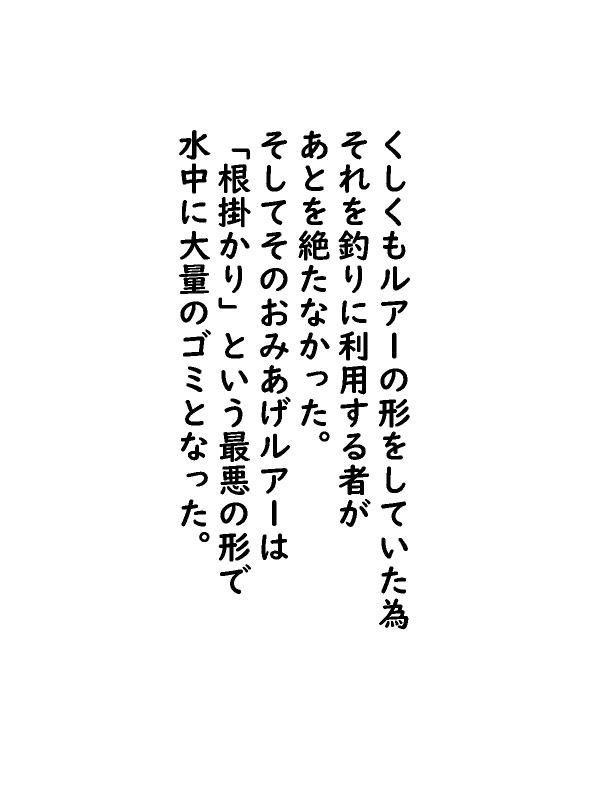 くしくもルアーの形をしていた為
それを釣りに利用する者が
あとを絶たなかった。
そしてそのおみあげルアーは
「根掛かり」という最悪の形で
水中に大量のゴミとなった。